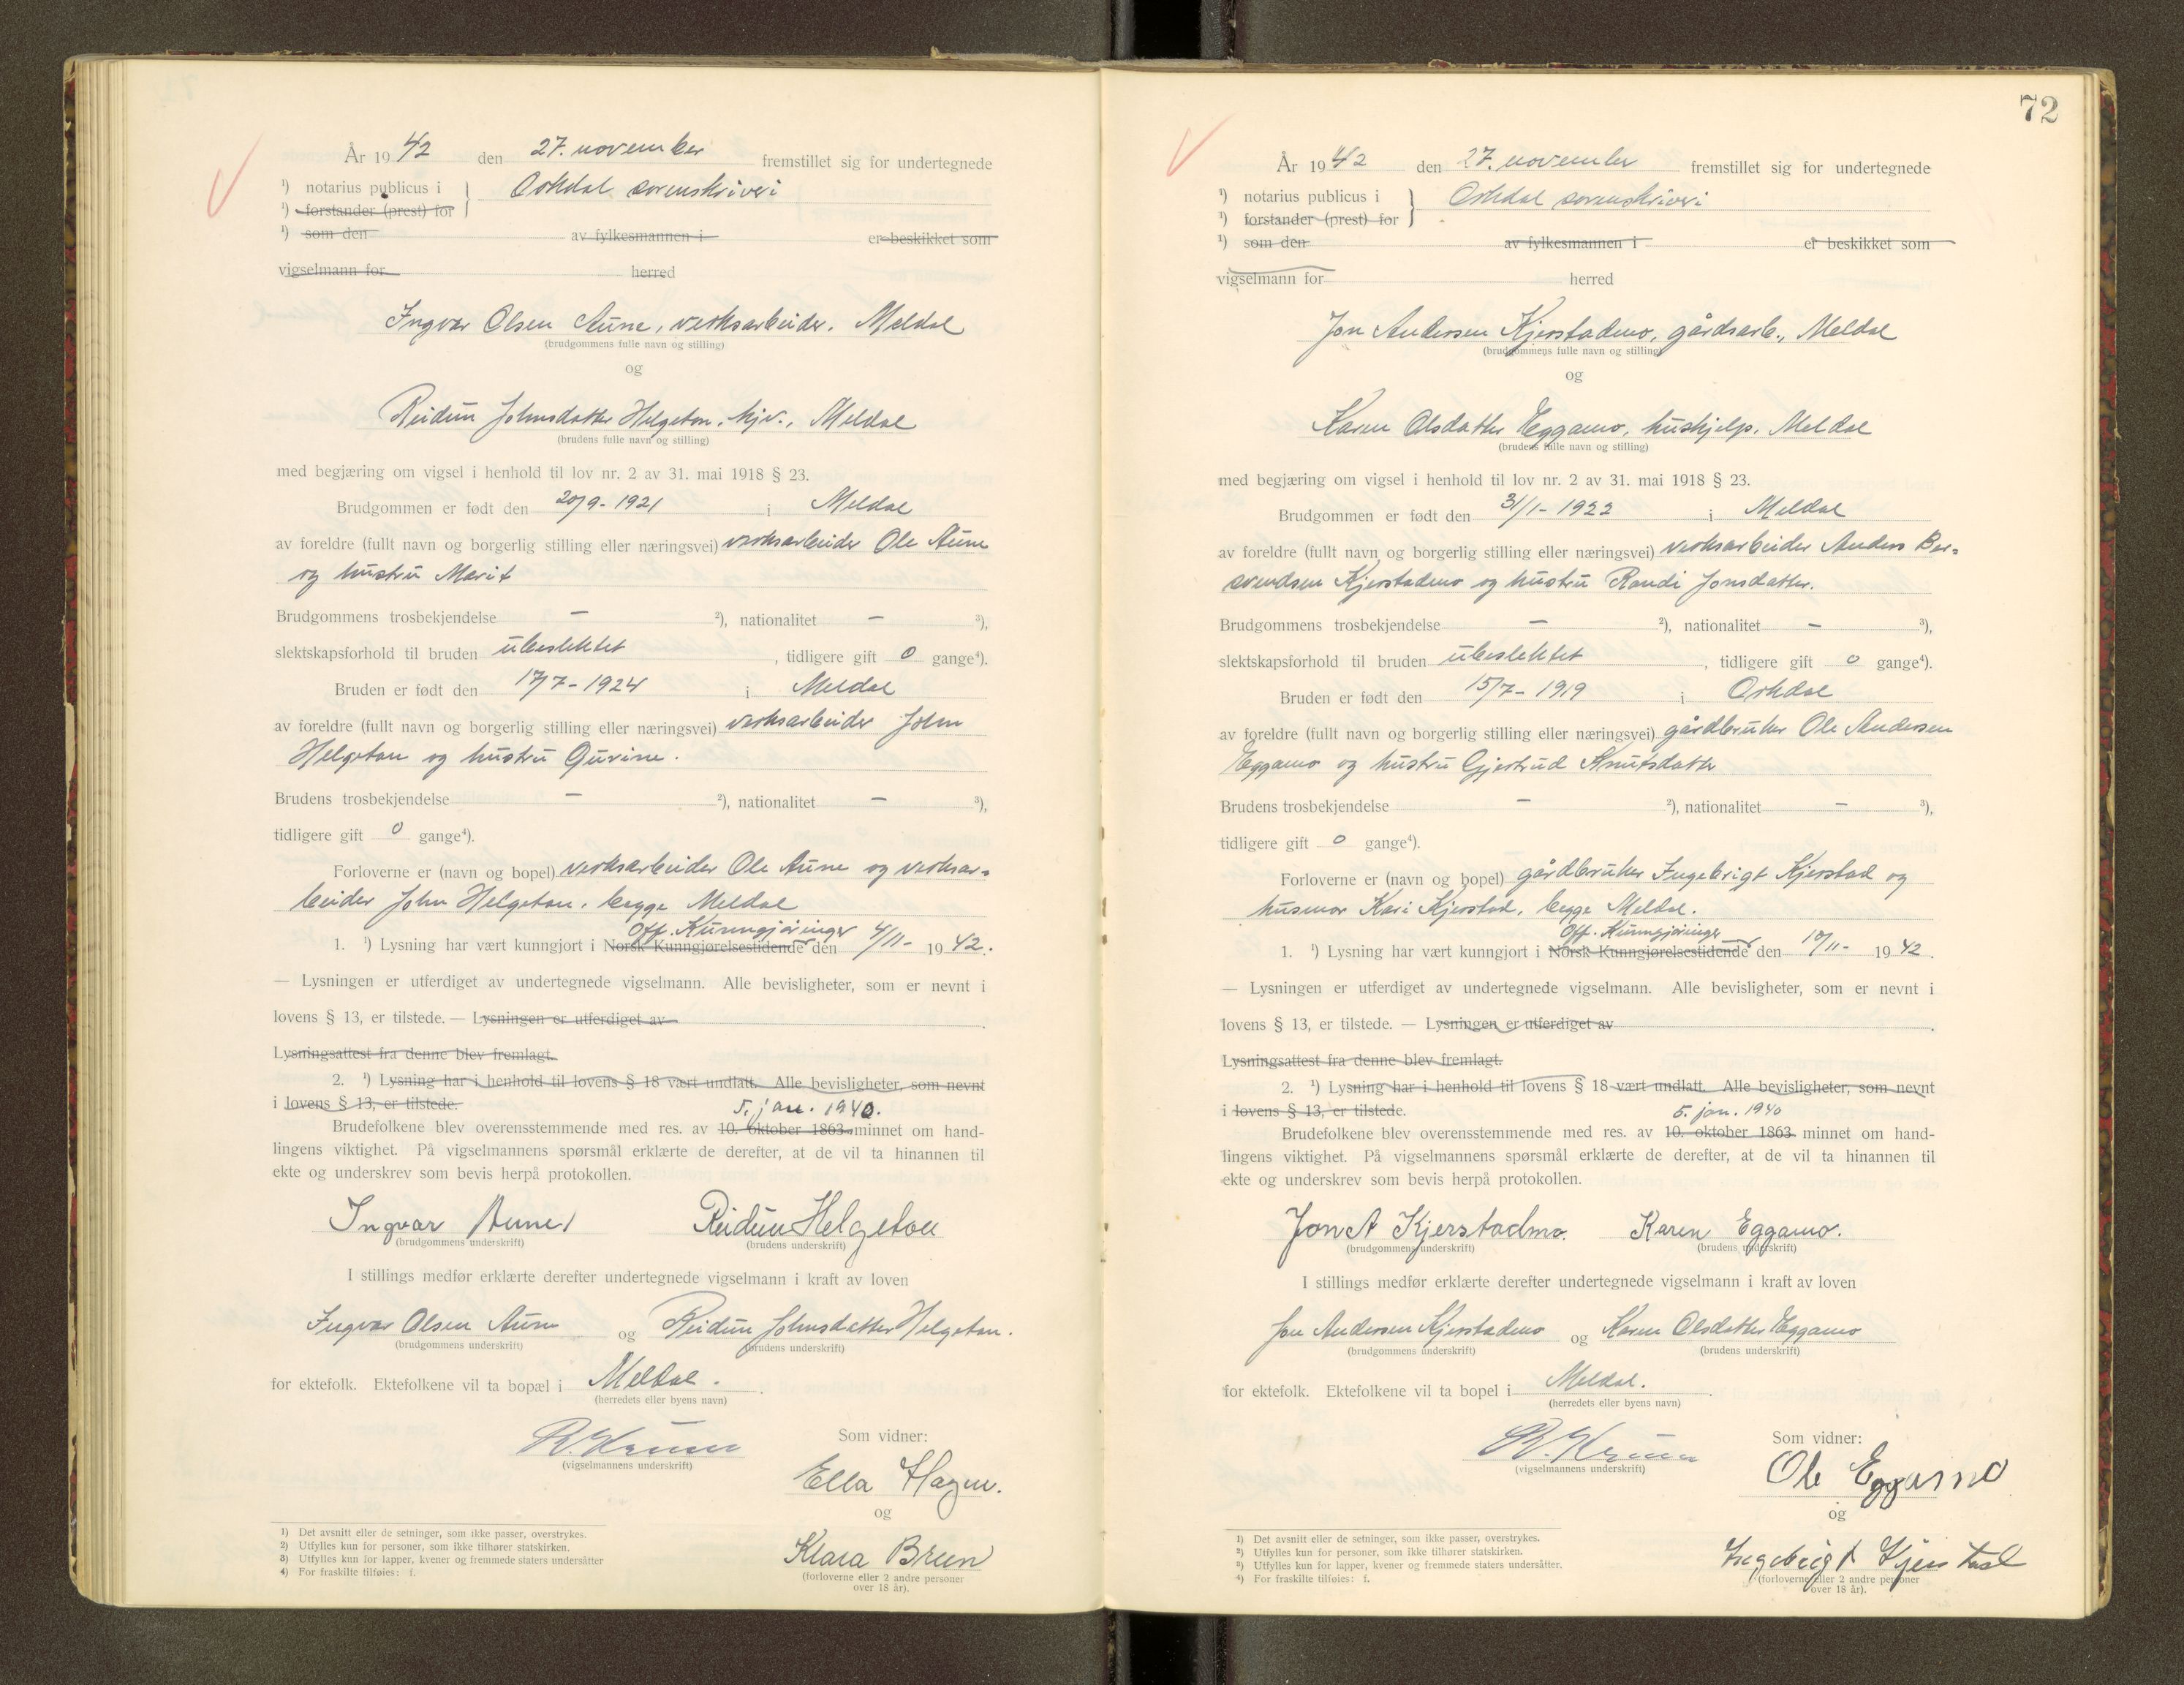 År 1942 den 27. november fremstillet sig for undertegnede
¹) notarius publicus i } Orkdal sorenskriveri
¹) forstander (prest) for
¹) som den av fylkesmannen i er beskikket som
vigselmann for herred
Ingvar Olsen Aune, verksarbeider, Meldal
(brudgommens fulle navn og stilling)
og
Reidun Johnsdatter Helgeton, hjv., Meldal
(brudens fulle navn og stilling)
med begjæring om vigsel i henhold til lov nr. 2 av 31. mai 1918 § 23.
Brudgommen er født den 20/9-1921 i Meldal
av foreldre (fullt navn og borgerlig stilling eller næringsvei) verksarbeider Ole Aune
og hustru Marit
Brudgommens trosbekjendelse — ²), nationalitet — ³),
slektskapsforhold til bruden ubeslektet, tidligere gift 0 gange⁴).
Bruden er født den 17/7-1924 i Meldal
av foreldre (fullt navn og borgerlig stilling eller næringsvei) verksarbeider John
Helgeton og hustru Gurine.
Brudens trosbekjendelse — ²), nationalitet — ³),
tidligere gift 0 gange⁴).
Forloverne er (navn og bopel) verksarbeider Ole Aune og verksar-
beider John Helgeton, begge Meldal
Off. Kunngjøringer
1. ¹) Lysning har vært kunngjort i Norsk Kunngjørelsestidende den 4/11- 1942.
— Lysningen er utferdiget av undertegnede vigselmann. Alle bevisligheter, som er nevnt i
lovens § 13, er tilstede. — Lysningen er utferdiget av
Lysningsattest fra denne blev fremlagt.
2. ¹) Lysning har i henhold til lovens § 18 vært undlatt. Alle bevisligheter, som nevnt
i lovens § 13, er tilstede.
5. jan. 1940.
Brudefolkene blev overensstemmende med res. av 10. oktober 1863 minnet om hand-
lingens viktighet. På vigselmannens spørsmål erklærte de derefter, at de vil ta hinannen til
ekte og underskrev som bevis herpå protokollen.
Ingvar Aune Reidun Helgeton
(brudgommens underskrift) (brudens underskrift)
I stillings medfør erklærte derefter undertegnede vigselmann i kraft av loven
Ingvar Olsen Aune og Reidun Johnsdatter Helgeton.
(brudgommens underskrift) (brudens underskrift)
for ektefolk. Ektefolkene vil ta bopæl i Meldal.
(herredets eller byens navn)
Som vidner:
(vigselmannens underskrift)
Ella Hagen.
og
Klara Bruun
(forloverne eller 2 andre personer
over 18 år).
¹) Det avsnitt eller de setninger, som ikke passer, overstrykes.
²) Utfylles kun for personer, som ikke tilhører statskirken.
³) Utfylles kun for lapper, kvener og fremmede staters undersåtter
⁴) For fraskilte tilføies: f.
72
År 1942 den 27. november fremstillet sig for undertegnede
¹) notarius publicus i } Orkdal sorenskriveri
¹) forstander (prest) for
¹) som den av fylkesmannen i er beskikket som
vigselmann for herred
Jon Andersen Kjerstadmo, gårdsarb., Meldal
(brudgommens fulle navn og stilling)
og
Karen Olsdatter Eggamo, hushjelp, Meldal
(brudens fulle navn og stilling)
med begjæring om vigsel i henhold til lov nr. 2 av 31. mai 1918 § 23.
Brudgommen er født den 31/1-1922 i Meldal
av foreldre (fullt navn og borgerlig stilling eller næringsvei) verksarbeider Anders Ber-
svendsen Kjerstadmo og hustru Randi Jonsdatter.
Brudgommens trosbekjendelse — ²), nationalitet — ³),
slektskapsforhold til bruden ubeslektet, tidligere gift 0 gange⁴).
Bruden er født den 15/7-1919 i Orkdal
av foreldre (fullt navn og borgerlig stilling eller næringsvei) gårdbruker Ole Andersen
Eggamo og hustru Gjertrud Knutsdatter
Brudens trosbekjendelse — ²), nationalitet — ³),
tidligere gift 0 gange⁴).
Forloverne er (navn og bopel) gårdbruker Ingebrigt Kjerstad og
husmor Kari Kjerstad, begge Meldal.
Off. Kunngjøringer
1. ¹) Lysning har vært kunngjort i Norsk Kunngjørelsestidende den 10/11- 1942.
— Lysningen er utferdiget av undertegnede vigselmann. Alle bevisligheter, som er nevnt i
lovens § 13, er tilstede. — Lysningen er utferdiget av
Lysningsattest fra denne blev fremlagt.
2. ¹) Lysning har i henhold til lovens § 18 vært undlatt. Alle bevisligheter, som nevnt
i lovens § 13, er tilstede.
5. jan. 1940
Brudefolkene blev overensstemmende med res. av 10. oktober 1863 minnet om hand-
lingens viktighet. På vigselmannens spørsmål erklærte de derefter, at de vil ta hinannen til
ekte og underskrev som bevis herpå protokollen.
Jon A Kjerstadmo. Karen Eggamo.
(brudgommens underskrift) (brudens underskrift)
I stillings medfør erklærte derefter undertegnede vigselmann i kraft av loven
Jon Andersen Kjerstadmo og Karen Olsdatter Eggamo
(brudgommens underskrift) (brudens underskrift)
for ektefolk. Ektefolkene vil ta bopel i Meldal.
(herredets eller byens navn)
Som vidner:
(vigselmannens underskrift)
Ole Eggamo
og
Ingebrigt Kjerstad
(forloverne eller 2 andre personer
over 18 år).
¹) Det avsnitt eller de setninger, som ikke passer, overstrykes.
²) Utfylles kun for personer, som ikke tilhører statskirken.
³) Utfylles kun for lapper, kvener og fremmede staters undersåtter.
⁴) For fraskilte tilføies: f.